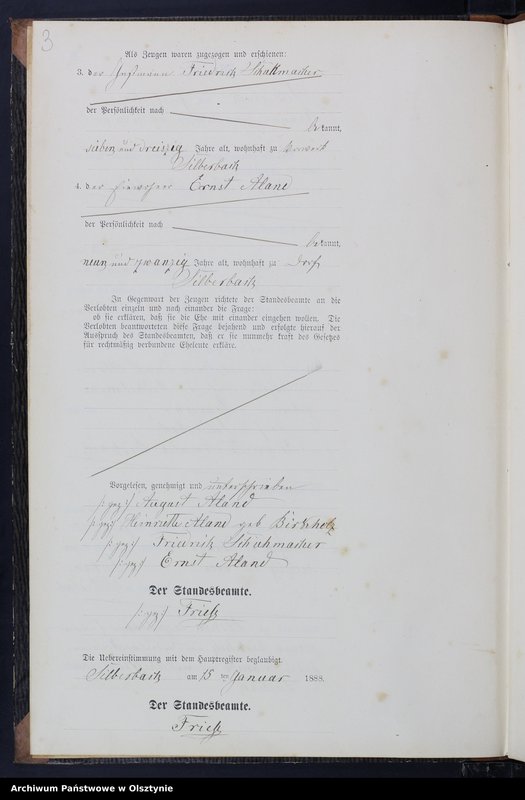 3
Als Zeugen waren zugezogen und erschienen:
3. der Instmann Friedrich Schuhmacher
der Persönlichkeit nach
bekannt,
sieben und dreiszig Jahre alt, wohnhaft zu Vorwerk
Silberbach
4. der Einwohner Ernst Aland
der Persönlichkeit nach
bekannt,
neun und zwanzig Jahre alt, wohnhaft zu Dorf
Silberbach
In Gegenwart der Zeugen richtete der Standesbeamte an die
Verlobten einzeln und nach einander die Frage:
ob sie erklären, daß sie die Ehe mit einander eingehen wollen. Die
Verlobten beantworteten diese Frage bejahend und erfolgte hierauf der
Ausspruch des Standesbeamten, daß er sie nunmehr kraft des Gesetzes
für rechtmäßig verbundene Eheleute erkläre.
Vorgelesen, genehmigt und unterschrieben
/: gez :/ August Aland
/: gez :/ Heinriette Aland geb Birkholz
/: gez :/ Friedrich Schuhmacher
/: gez :/ Ernst Aland
Der Standesbeamte.
/: gez :/ Friesz
Die Uebereinstimmung mit dem Hauptregister beglaubigt.
Silberbach am 15 ten Januar 1888.
Der Standesbeamte.
Friesz
Archiwum Państwowe w Olsztynie